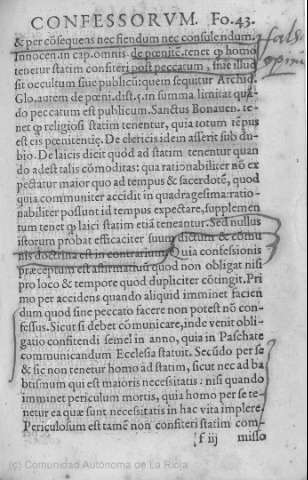 CONFESSORVM. Fo. 43.
& per cõsequens nec fiendum nec consulendum.
Innocen. in cap. omnis de pœnitẽ. tenet ꝙ homo
tenetur statim confiteri post peccatum, siue illud
sit occultum siue publicũ: quem sequitur Archid.
Glo. autem de pœni. dist. 1. in summa limitat quã
do peccatum est publicum. Sanctus Bonauen. te-
net ꝙ religiosi statim tenentur, quia totum tẽpus
est eis pœnitentiæ. De clericis idem asserit sub du-
bio. De laicis dicit quòd ad statim tenentur quan
do adest talis cõmoditas: qua rationabiliter nõ ex
pectatur maior quo ad tempus & sacerdotẽ, quod
quia communiter accidit in quadragesima: ratio-
nabiliter possunt id tempus expectare, supplemen
tum tenet ꝙ laici statim etiã teneantur. Sed nullus
istorum probat efficaciter suum dictum & cõmu
nis doctrina est in contrarium. Quia confessionis
præceptum est affirmatiuũ quod non obligat nisi
pro loco & tempore quod dupliciter cõtingit. Pri
mo per accidens quando aliquid imminet facien
dum quod sine peccato facere non potest nõ con-
fessus. Sicut si debet cõmunicare, inde venit obli-
gatio confitendi semel in anno, quia in Paschate
communicandum Ecclesia statuit. Secũdo per se
& sic non tenetur homo ad statim, sicut nec ad ba
btismum qui est maioris necessitatis: nisi quando
imminet periculum mortis, quia homo per se te-
netur ea quæ sunt necessitatis in hac vita implere.
Periculosum est tamẽ non confiteri statim com-
f iij misso
fals
opini
(c) Comunidad Autónoma de La Rioja